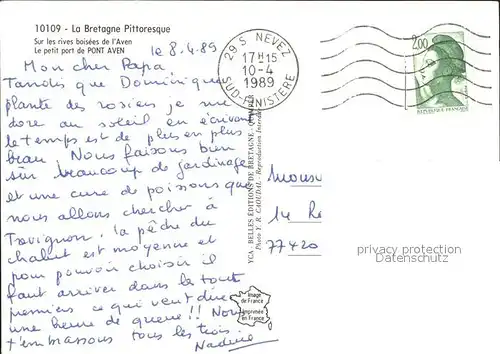 10109 - La Bretagne Pittoresque
Sur les rives boisées de l'Aven
Le petit port de PONT AVEN
le 8.4.89
Mon cher Papa
Tandis que Dominique
plante des rosiers je me
dore au soleil en écrivant
le temps est de plus en plus
beau. Nous faisons bien
sûr beaucoup de jardinage
et une cure de poissons que
nous allons chercher à
Trévignon. la pêche du
chalut est moyenne et
pour pouvoir choisir il
faut arriver dans les tout
premiers ce qui veut dire
une heure de queue!! Nous
t'embrassons tous les trois.
Nadine
29 S. NEVEZ
17H15
10-4
1989
SUD-FINISTERE
2,00
REPUBLIQUE FRANÇAISE
YCA - BELLES ÉDITIONS DE BRETAGNE
Photo Y. R. CAOUDAL - Reproduction Interdite
Image
de France
Imprimée
en France
14
77420
privacy protection
AnsichtskartenVersand.com